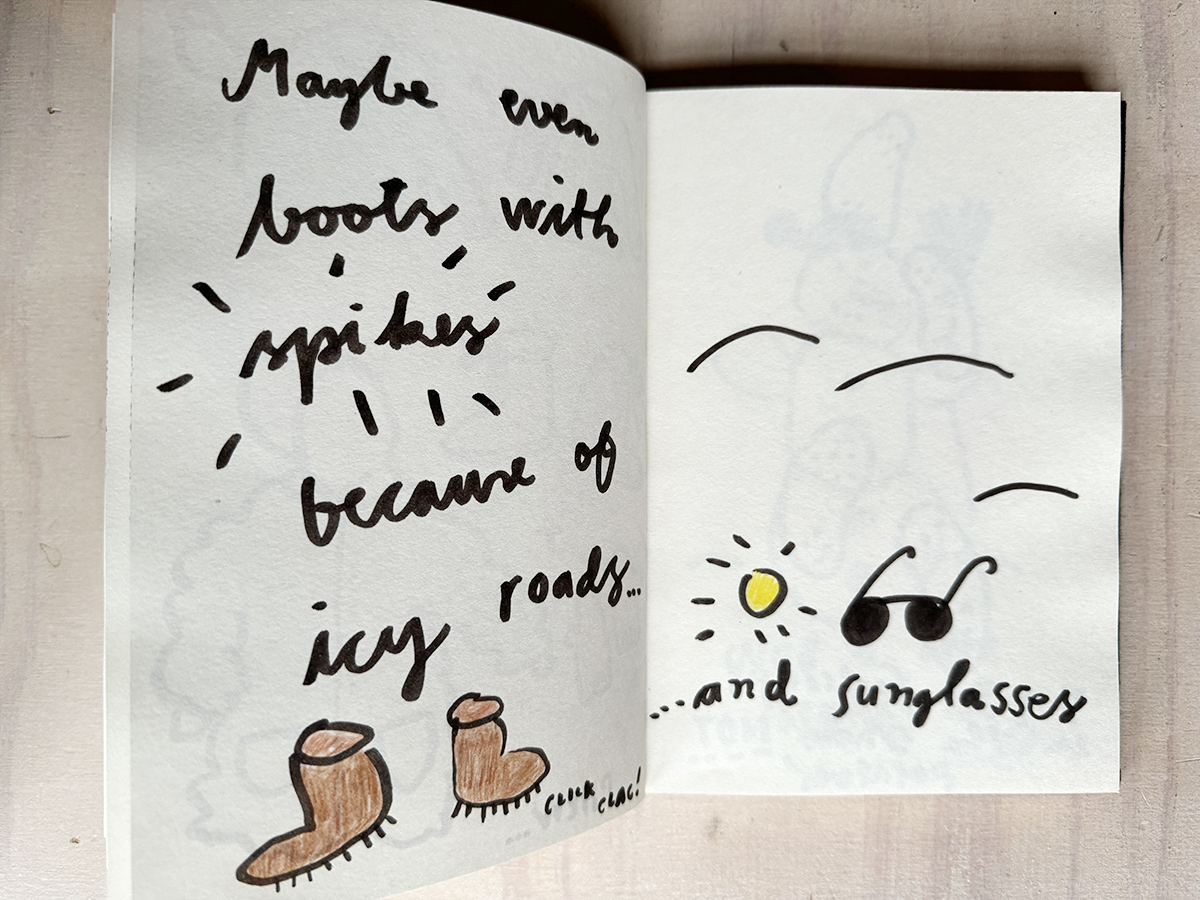 Maybe even
boots with
spikes
because of
icy roads...
CLICK
CLAC!
...and sunglasses